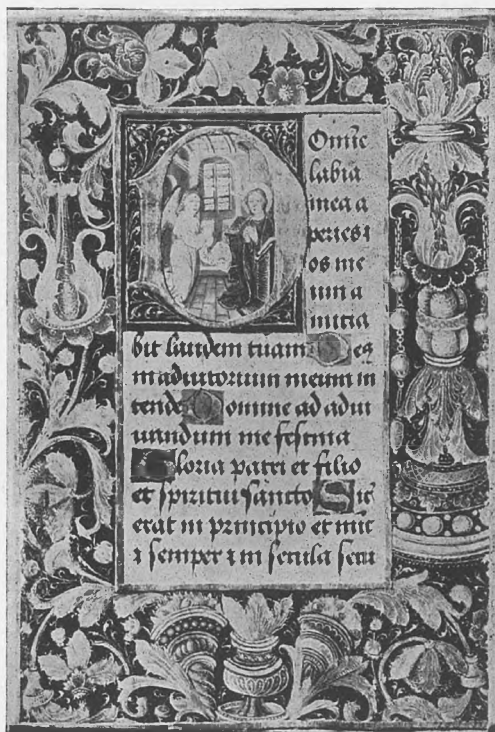 Domīe
labia
mea a
peries ⁊
os me
um a
nutia
bit laudem tuam Des
in adiutorium meum in
tende Domine ad adiu
uandum me festina
Gloria patri et filio
et spiritui sancto Sic
erat in principio et nūc
⁊ semper ⁊ in secula secu